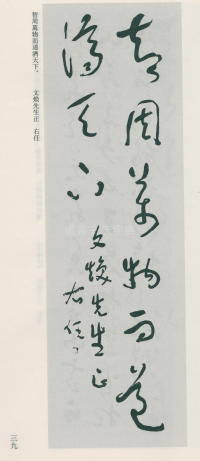 智周萬物而道
濟天下
文煥先生正
右任
智周萬物而道濟天下。 文煥先生正 右任
三九